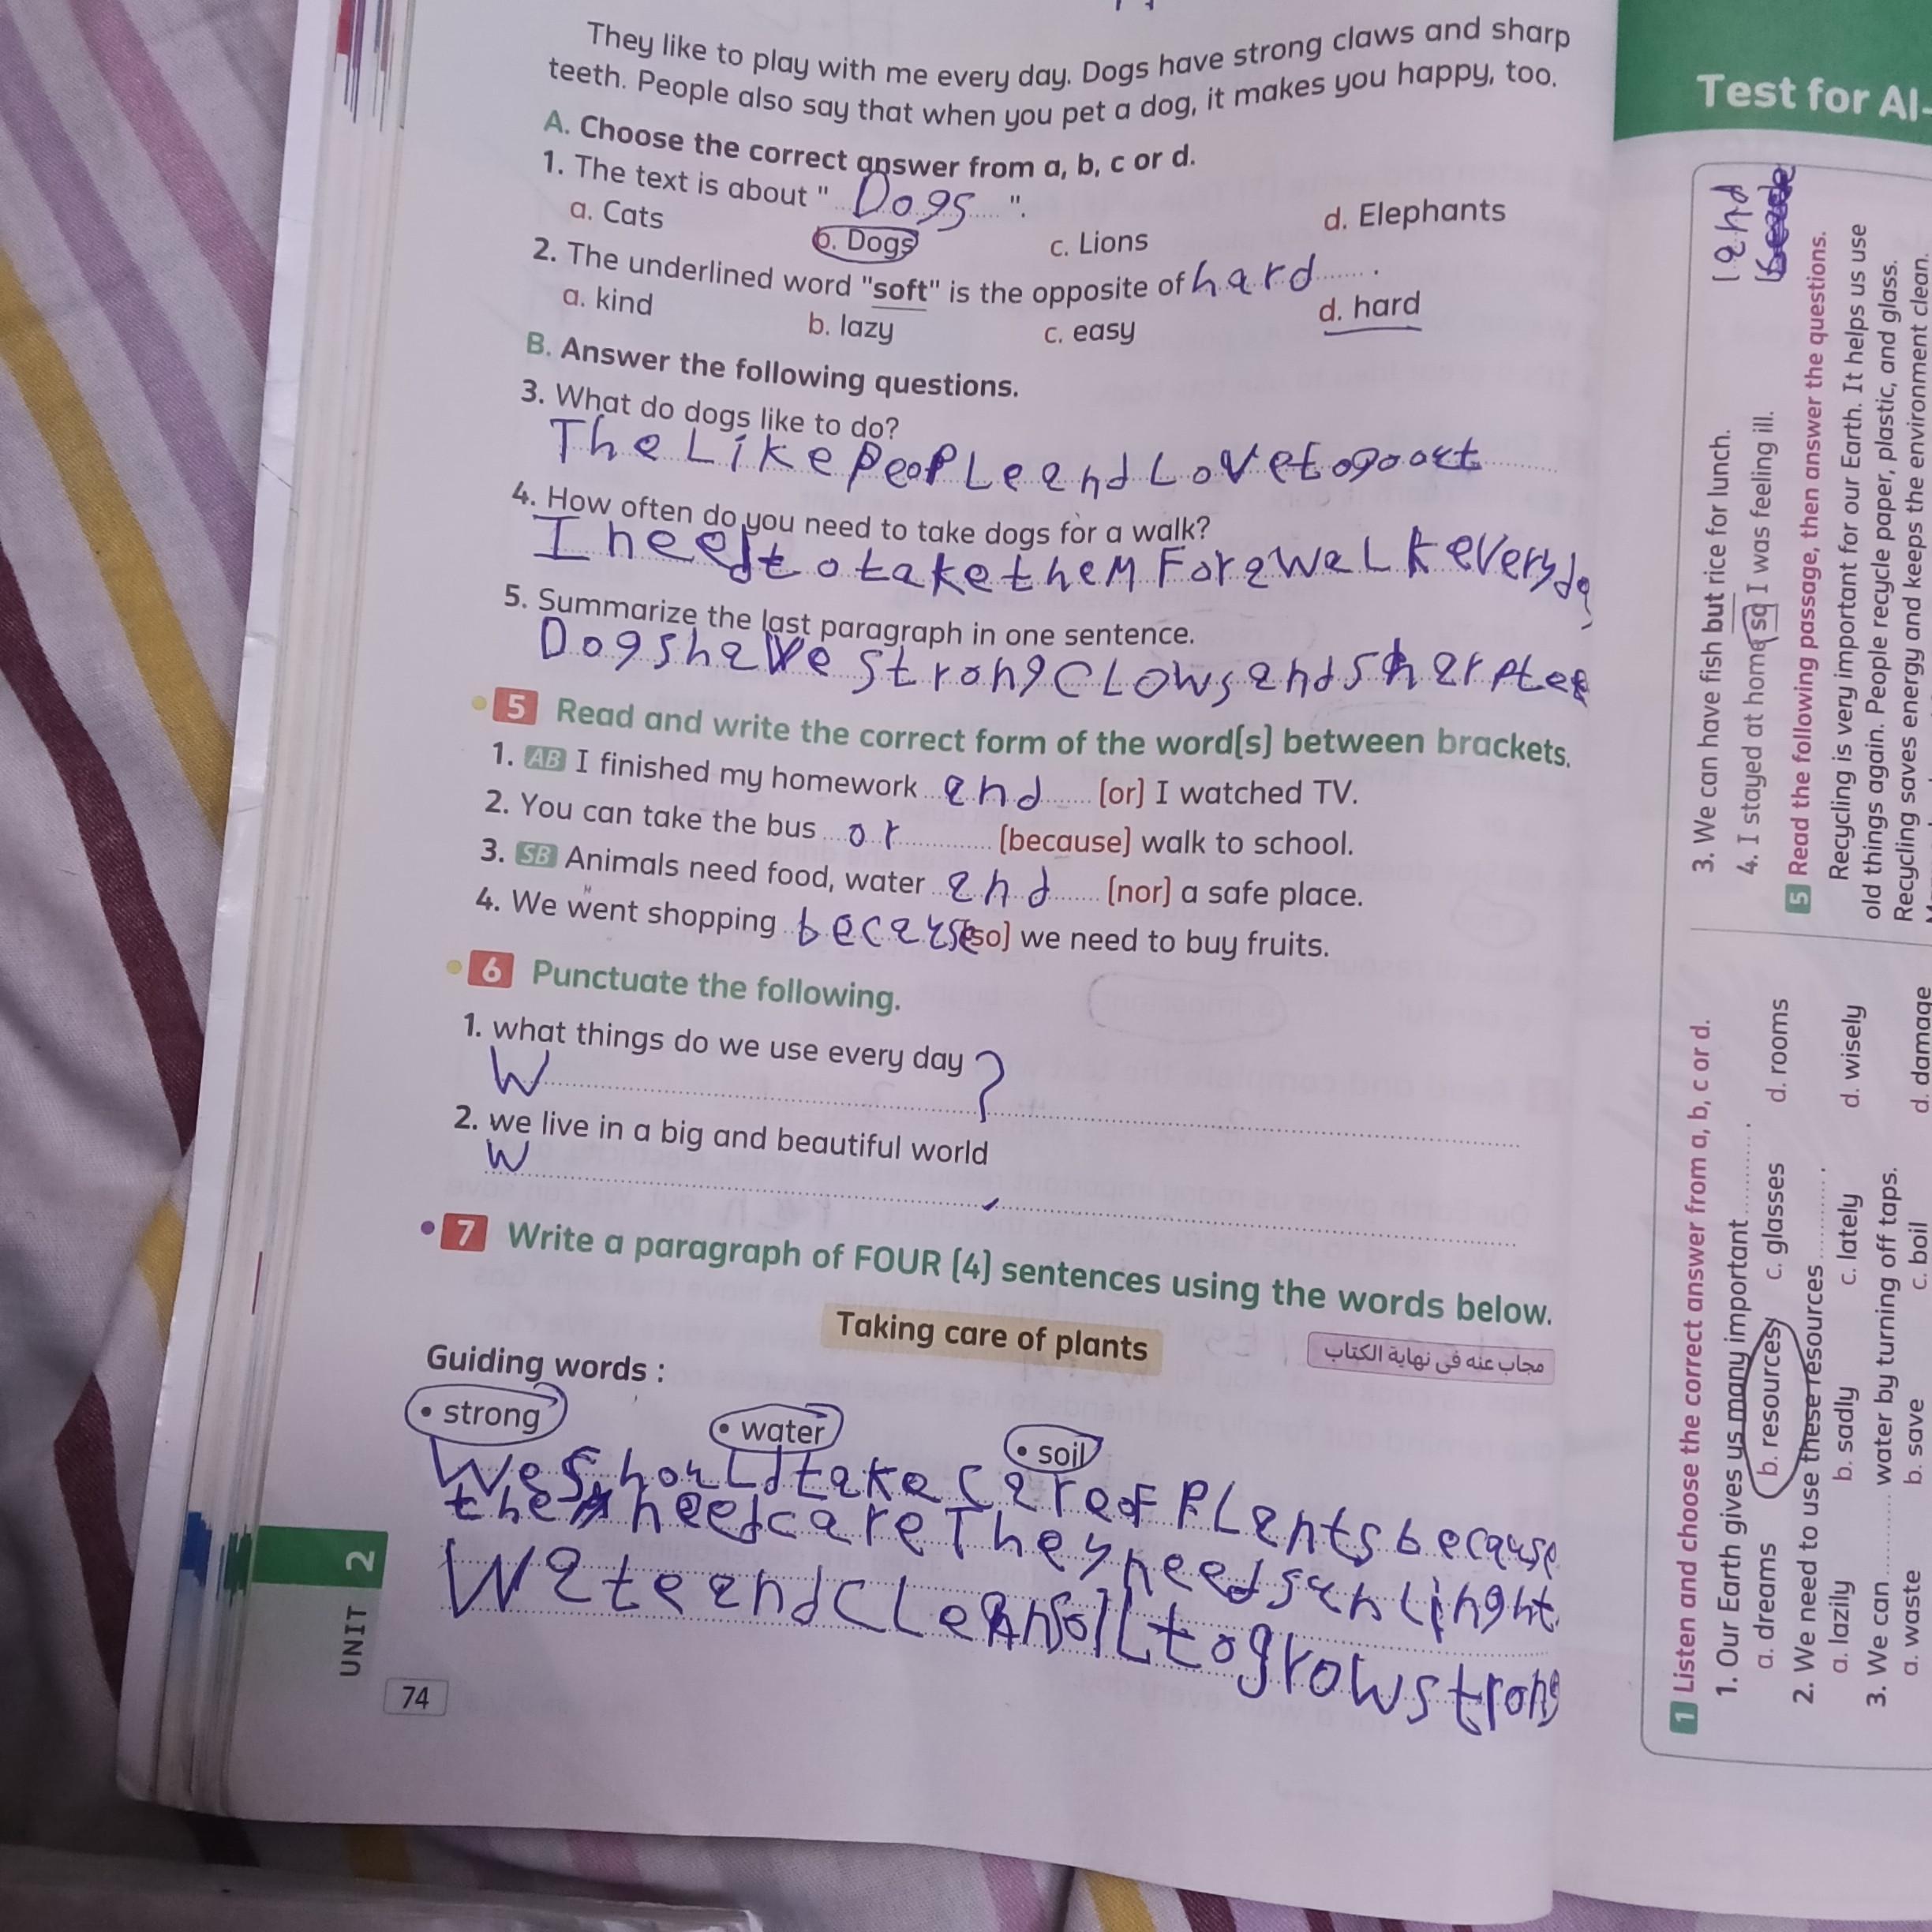 They like to play with me every day. Dogs have strong claws and sharp
teeth. People also say that when you pet a dog, it makes you happy, too.
A. Choose the correct answer from a, b, c or d.
1. The text is about " Dogs ".
a. Cats b. Dogs c. Lions d. Elephants
2. The underlined word "soft" is the opposite of hard .
a. kind b. lazy c. easy d. hard
B. Answer the following questions.
3. What do dogs like to do?
The Like People and Love to go out
4. How often do you need to take dogs for a walk?
I need to take them For a walk every da
5. Summarize the last paragraph in one sentence.
Dogs have strong clows and sharp tee
5 Read and write the correct form of the word(s) between brackets.
1. AB I finished my homework and [or] I watched TV.
2. You can take the bus or [because] walk to school.
3. SB Animals need food, water and [nor] a safe place.
4. We went shopping because [so] we need to buy fruits.
6 Punctuate the following.
1. what things do we use every day
W ?
2. we live in a big and beautiful world
W .
7 Write a paragraph of FOUR (4) sentences using the words below.
Taking care of plants
مجاب عنه فى نهاية الكتاب
Guiding words :
• strong • water • soil
We should take care of Plants because
they need care They need sun linght
Wate and clean soil to grow strong
UNIT 2
74
Test for Al-
3. We can have fish but rice for lunch. and
4. I stayed at home so I was feeling ill.
5 Read the following passage, then answer the questions.
Recycling is very important for our Earth. It helps us use
old things again. People recycle paper, plastic, and glass.
Recycling saves energy and keeps the environment clean.
1 Listen and choose the correct answer from a, b, c or d.
1. Our Earth gives us many important .
a. dreams b. resources c. glasses d. rooms
2. We need to use these resources .
a. lazily b. sadly c. lately d. wisely
3. We can water by turning off taps.
a. waste b. save c. boil d. damage